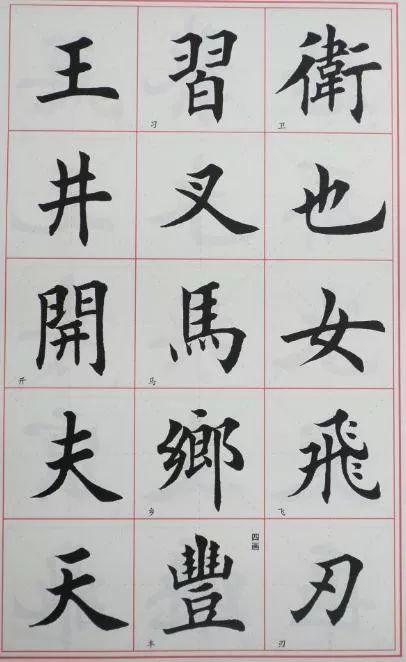 衛 卫
也
女
飛 飞
刃 刃
習 习
叉
馬 马
鄉 乡
四画
豐 丰
王
井
開 开
夫
天